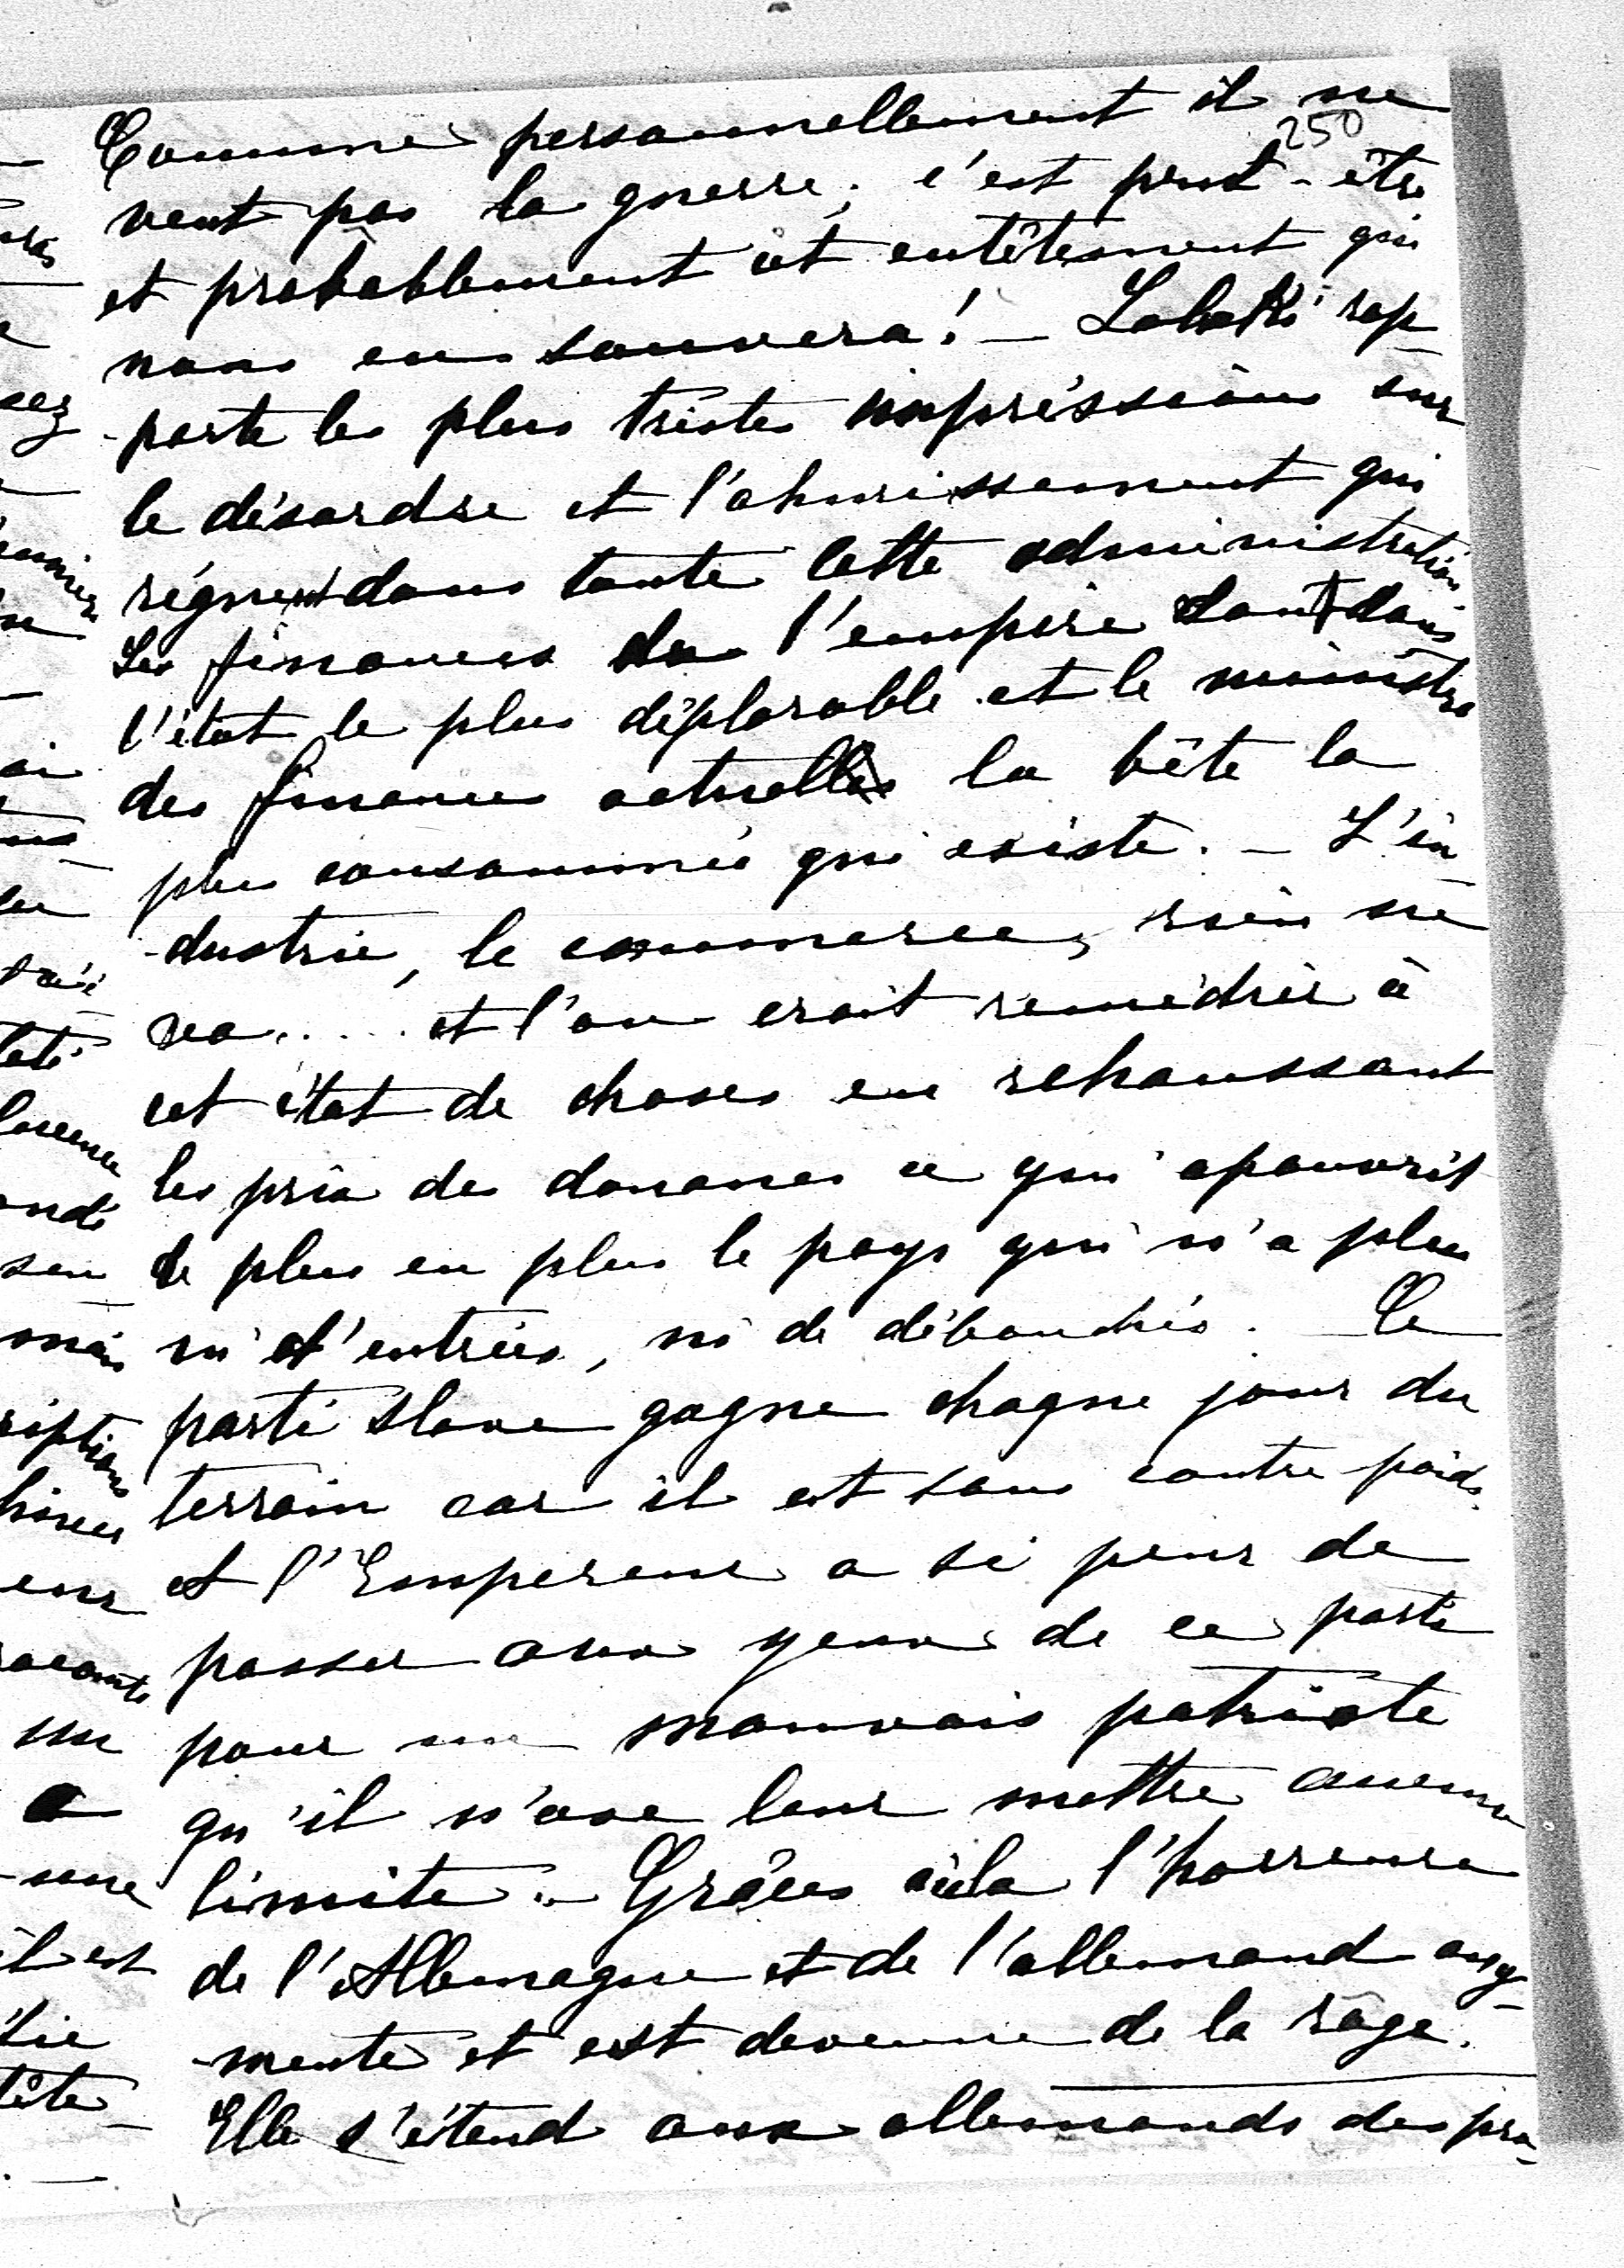 Comme personnellement il ne
250
veut pas la guerre, c'est peut-être
et probablement cet entêtement qui
nous en sauvera! — Lobakki rap-
-porte les plus tristes impréssions sur
le désordre et l'ahurissement qui
régnent dans toute cette administration
Les finances de l'empire sont dans
l'état le plus déplorable et le ministre
des finances actuelles la bête la
plus consommée qui existe. — L'in
-dustrie, le commerce, rien ne
va.... et l'on croit remédier à
cet état de choses en rehaussant
les prix des douanes ce qui apauvrit
de plus en plus le pays qui n'a plus
ni d'entrées, ni de débouchés. Le
parti slave gagne chaque jour du
terrain car il est sans contre poids.
et l'Empereur a si peur de
passer aux yeux de ce parti
pour un mauvais patriote
qu'il n'ose leur mettre aucune
limite. — Grâces à cela l'horreur
de l'Allemagne et de l'allemand aug-
-mente et est devenue de la râge.
Elle s'étend aux allemands des pro-